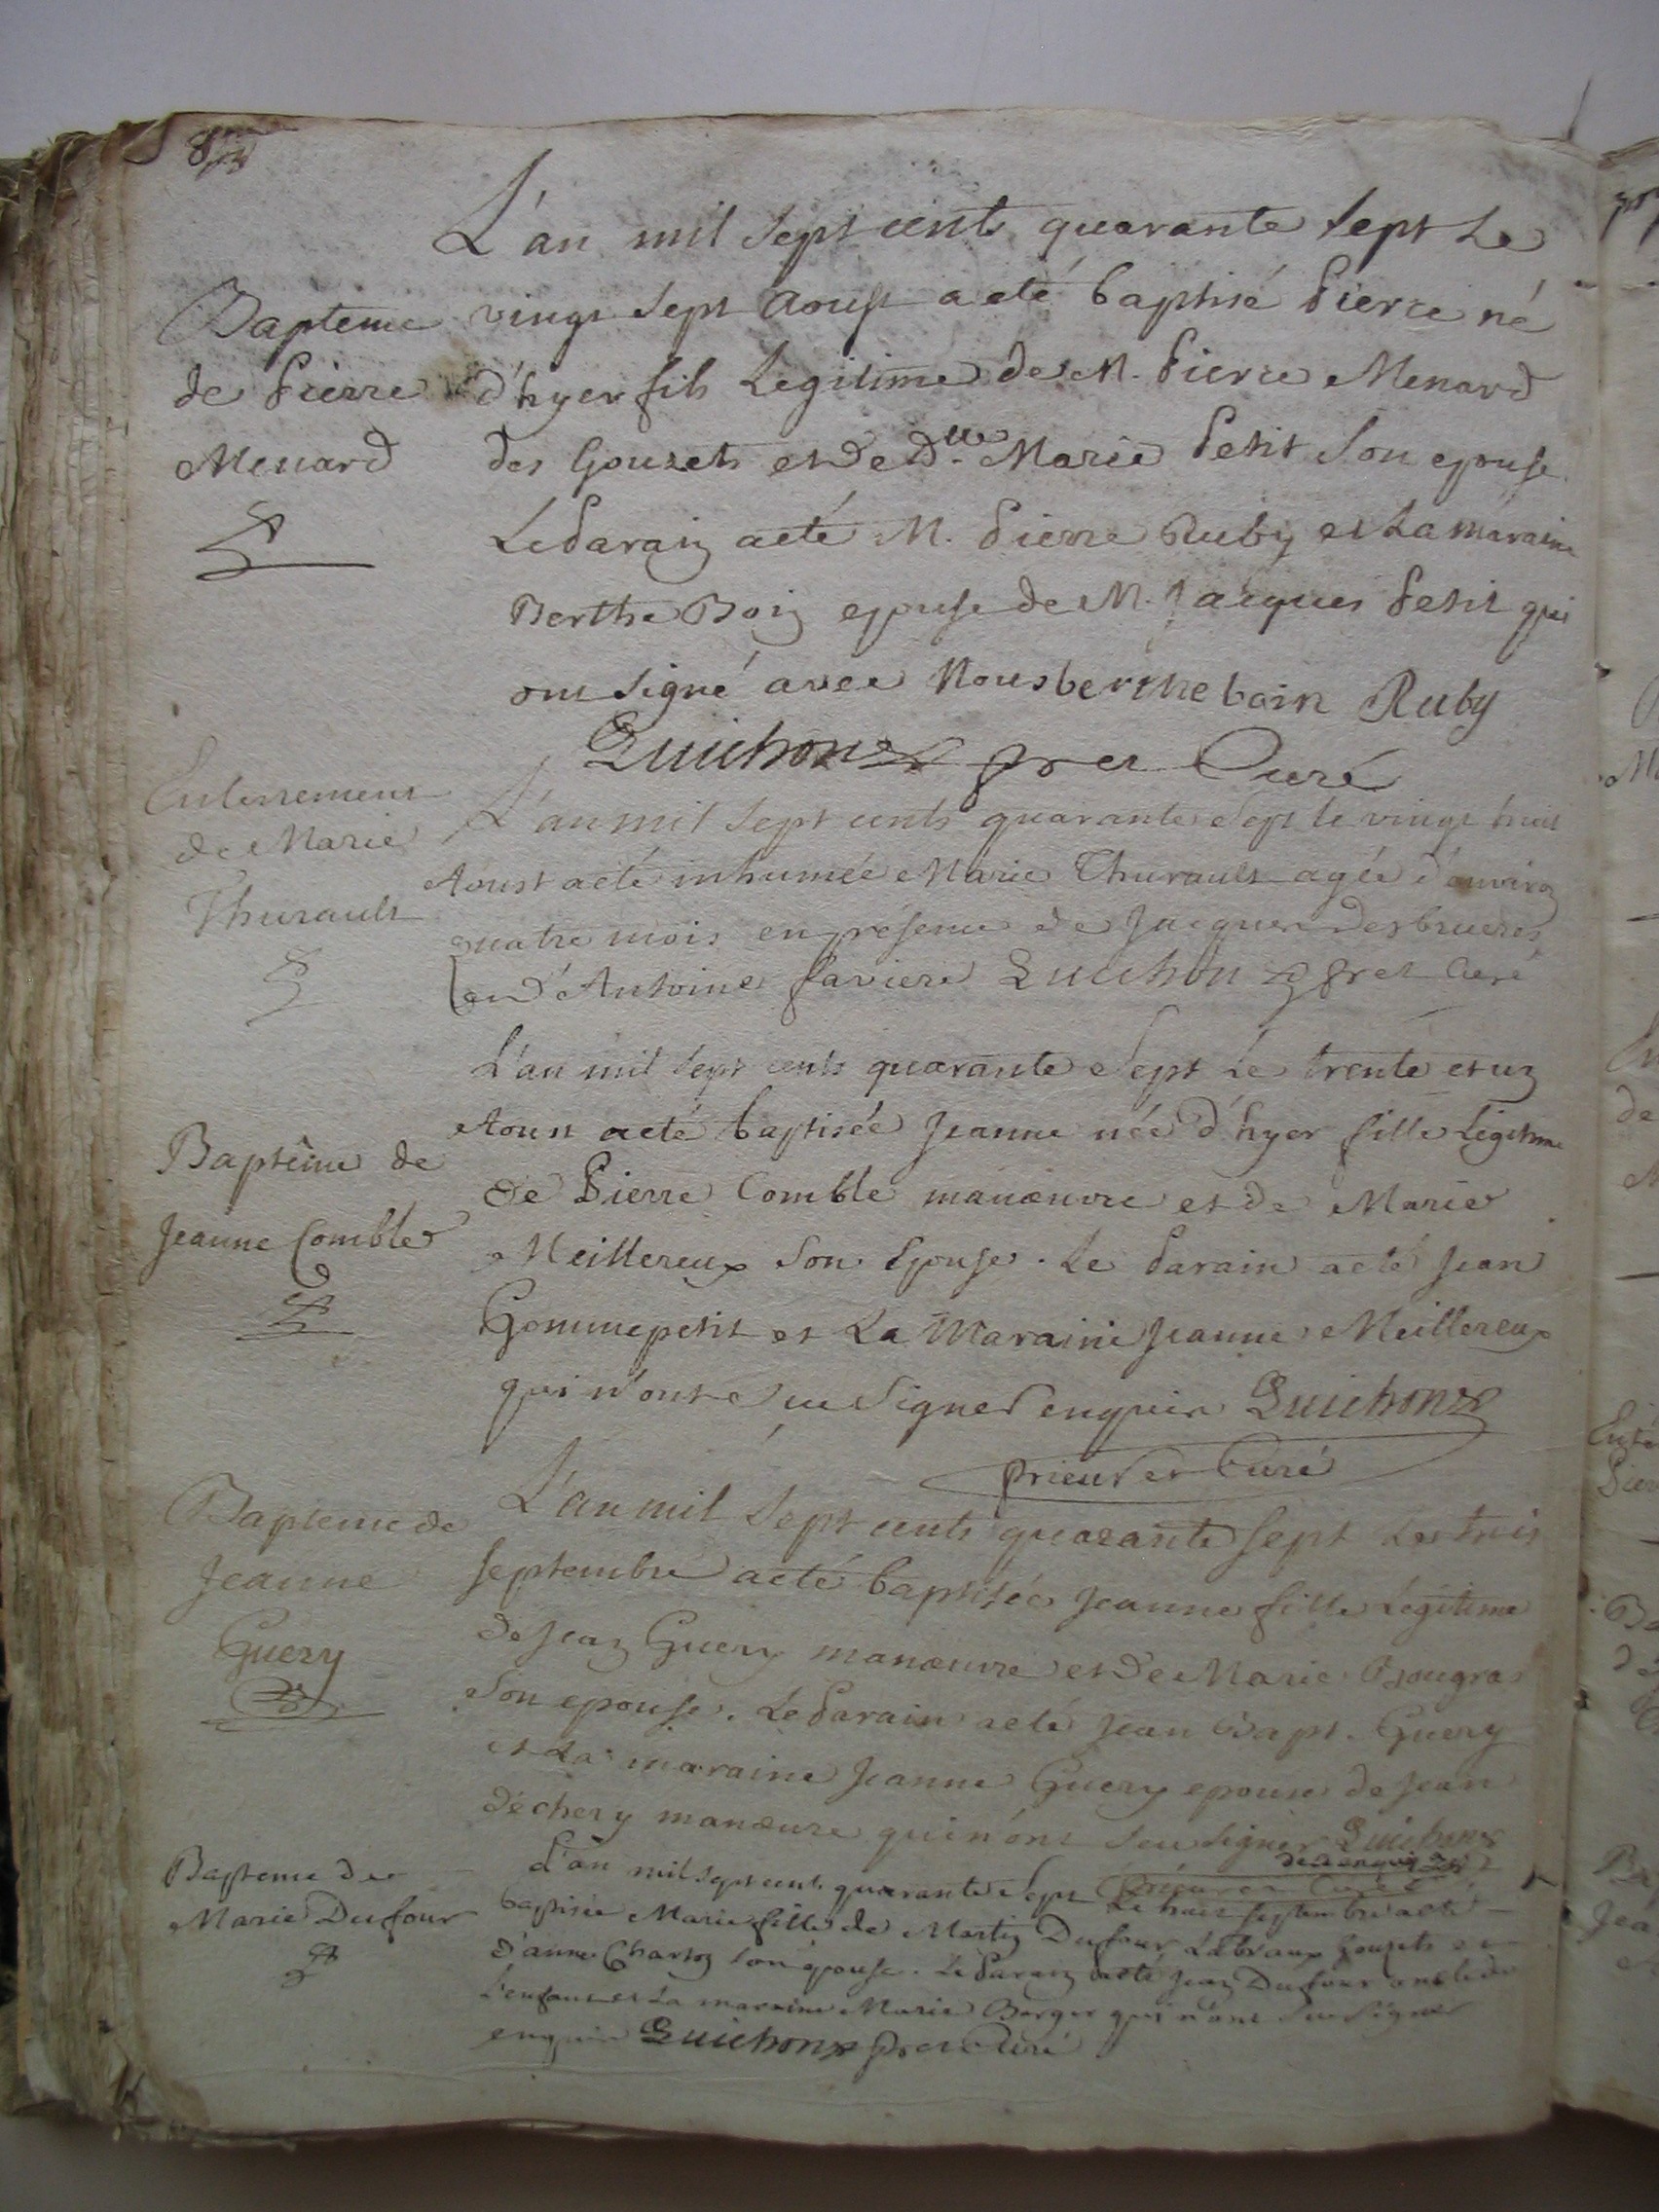 L'an mil sept cents quarante sept Le
Bapteme
de Pierre
Menard
vingt sept Aoust a eté baptisé Pierre né
d'hyer fils Legitime de M. Pierre Menard
des Gouzets et de Dlle Marie Petit Son epouse
Le Parain a eté M. Pierre Ruby et La maraine
Berthe Boin epouse de M. Jacques Petit qui
ont signé avec Nous berthe boin Ruby
Guichon pr et Curé
Enterrement
de Marie
Thurault
L'an mil sept cents quarante Sept le vingt huit
Aoust a eté inhumée Marie Thurault agée d'anviron
quatre mois en présence de Jacques Desbrueres
et d'Antoine Guichon pr et Curé
Baptême de
Jeanne Comble
L'an mil sept cents quarante Sept Le trente et un
Aoust a eté baptisée Jeanne née d'hyer fille Légitime
de Pierre Comble manœuvre et de Marie
Meillereux Son Epouse. Le Parain a eté Jean
Gommepetit et La Maraine Jeanne Meillereux
qui n'ont Su Signer enquis Guichon
prieur et Curé
Bapteme de
Jeanne
Guery
L'an mil Sept cents quarante sept Le trois
septembre a eté baptisée Jeanne fille Légitime
de Jean Guery manœuvre et de Marie Bougras
Son epouse. Le Parain a eté Jean Bapt. Guery
et La maraine Jeanne Guery epouse de Jean
déchery manœuvre qui n'ont Seu signer Guichon
de ce enquis
Prieur et Curé
Bapteme de
Marie Dufour
L'an mil sept cents quarante Sept Le huit septembre a eté
baptisée Marie fille de Martin Dufour Gouzets et
d'anne Charton son épouse. Le Parain a eté Jean Dufour oncle de
L'enfant et La maraine Marie Berger qui n'ont Su Signer
enquis Guichon pr et Curé